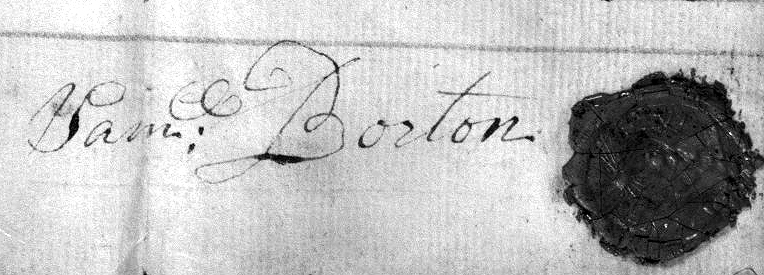 Saml. Borton